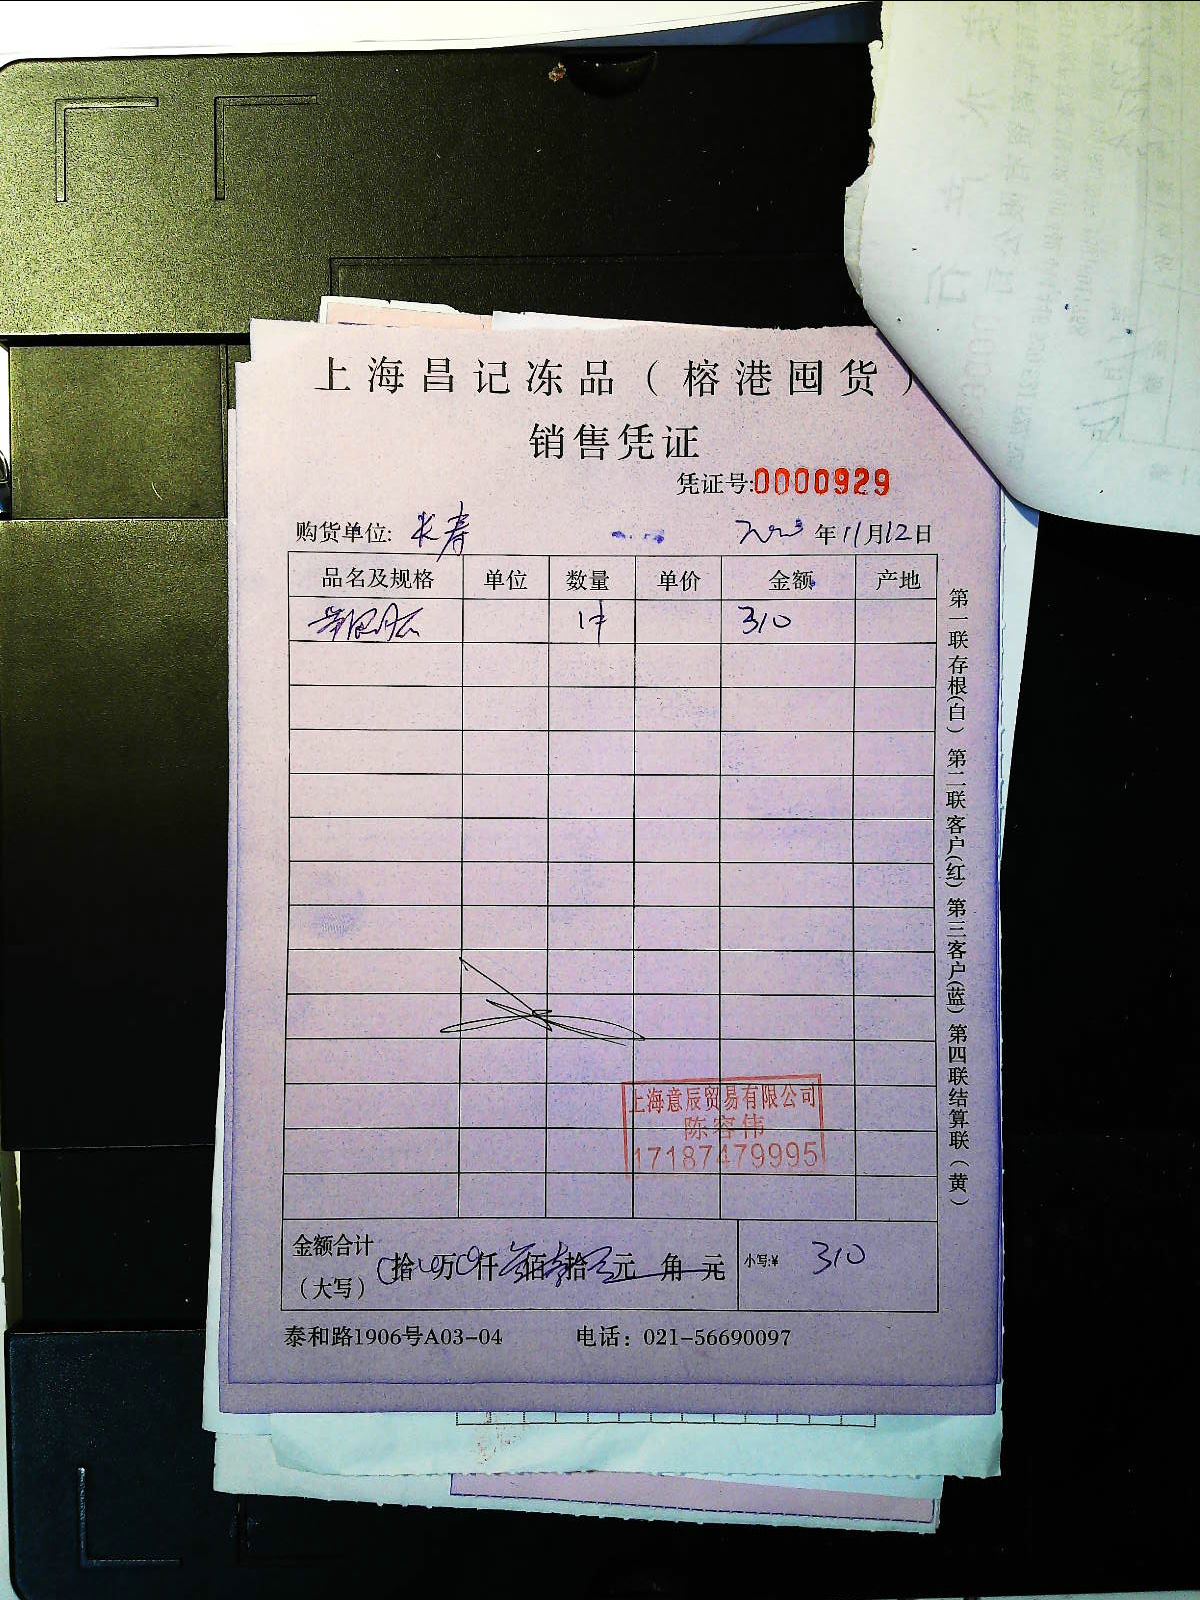 上海昌记冻品（榕港囤货）
销售凭证
凭证号:0000929
购货单位: 长寿 2023年11月12日
品名及规格 单位 数量 单价 金额 产地
1件 310
第一联存根(白) 第二联客户(红) 第三客户(蓝) 第四联结算联(黄)
上海意辰贸易有限公司
陈容伟
17187479995
金额合计
（大写） 拾 万 仟 叁佰 拾 元 角 元 小写:¥ 310
泰和路1906号A03-04 电话：021-56690097